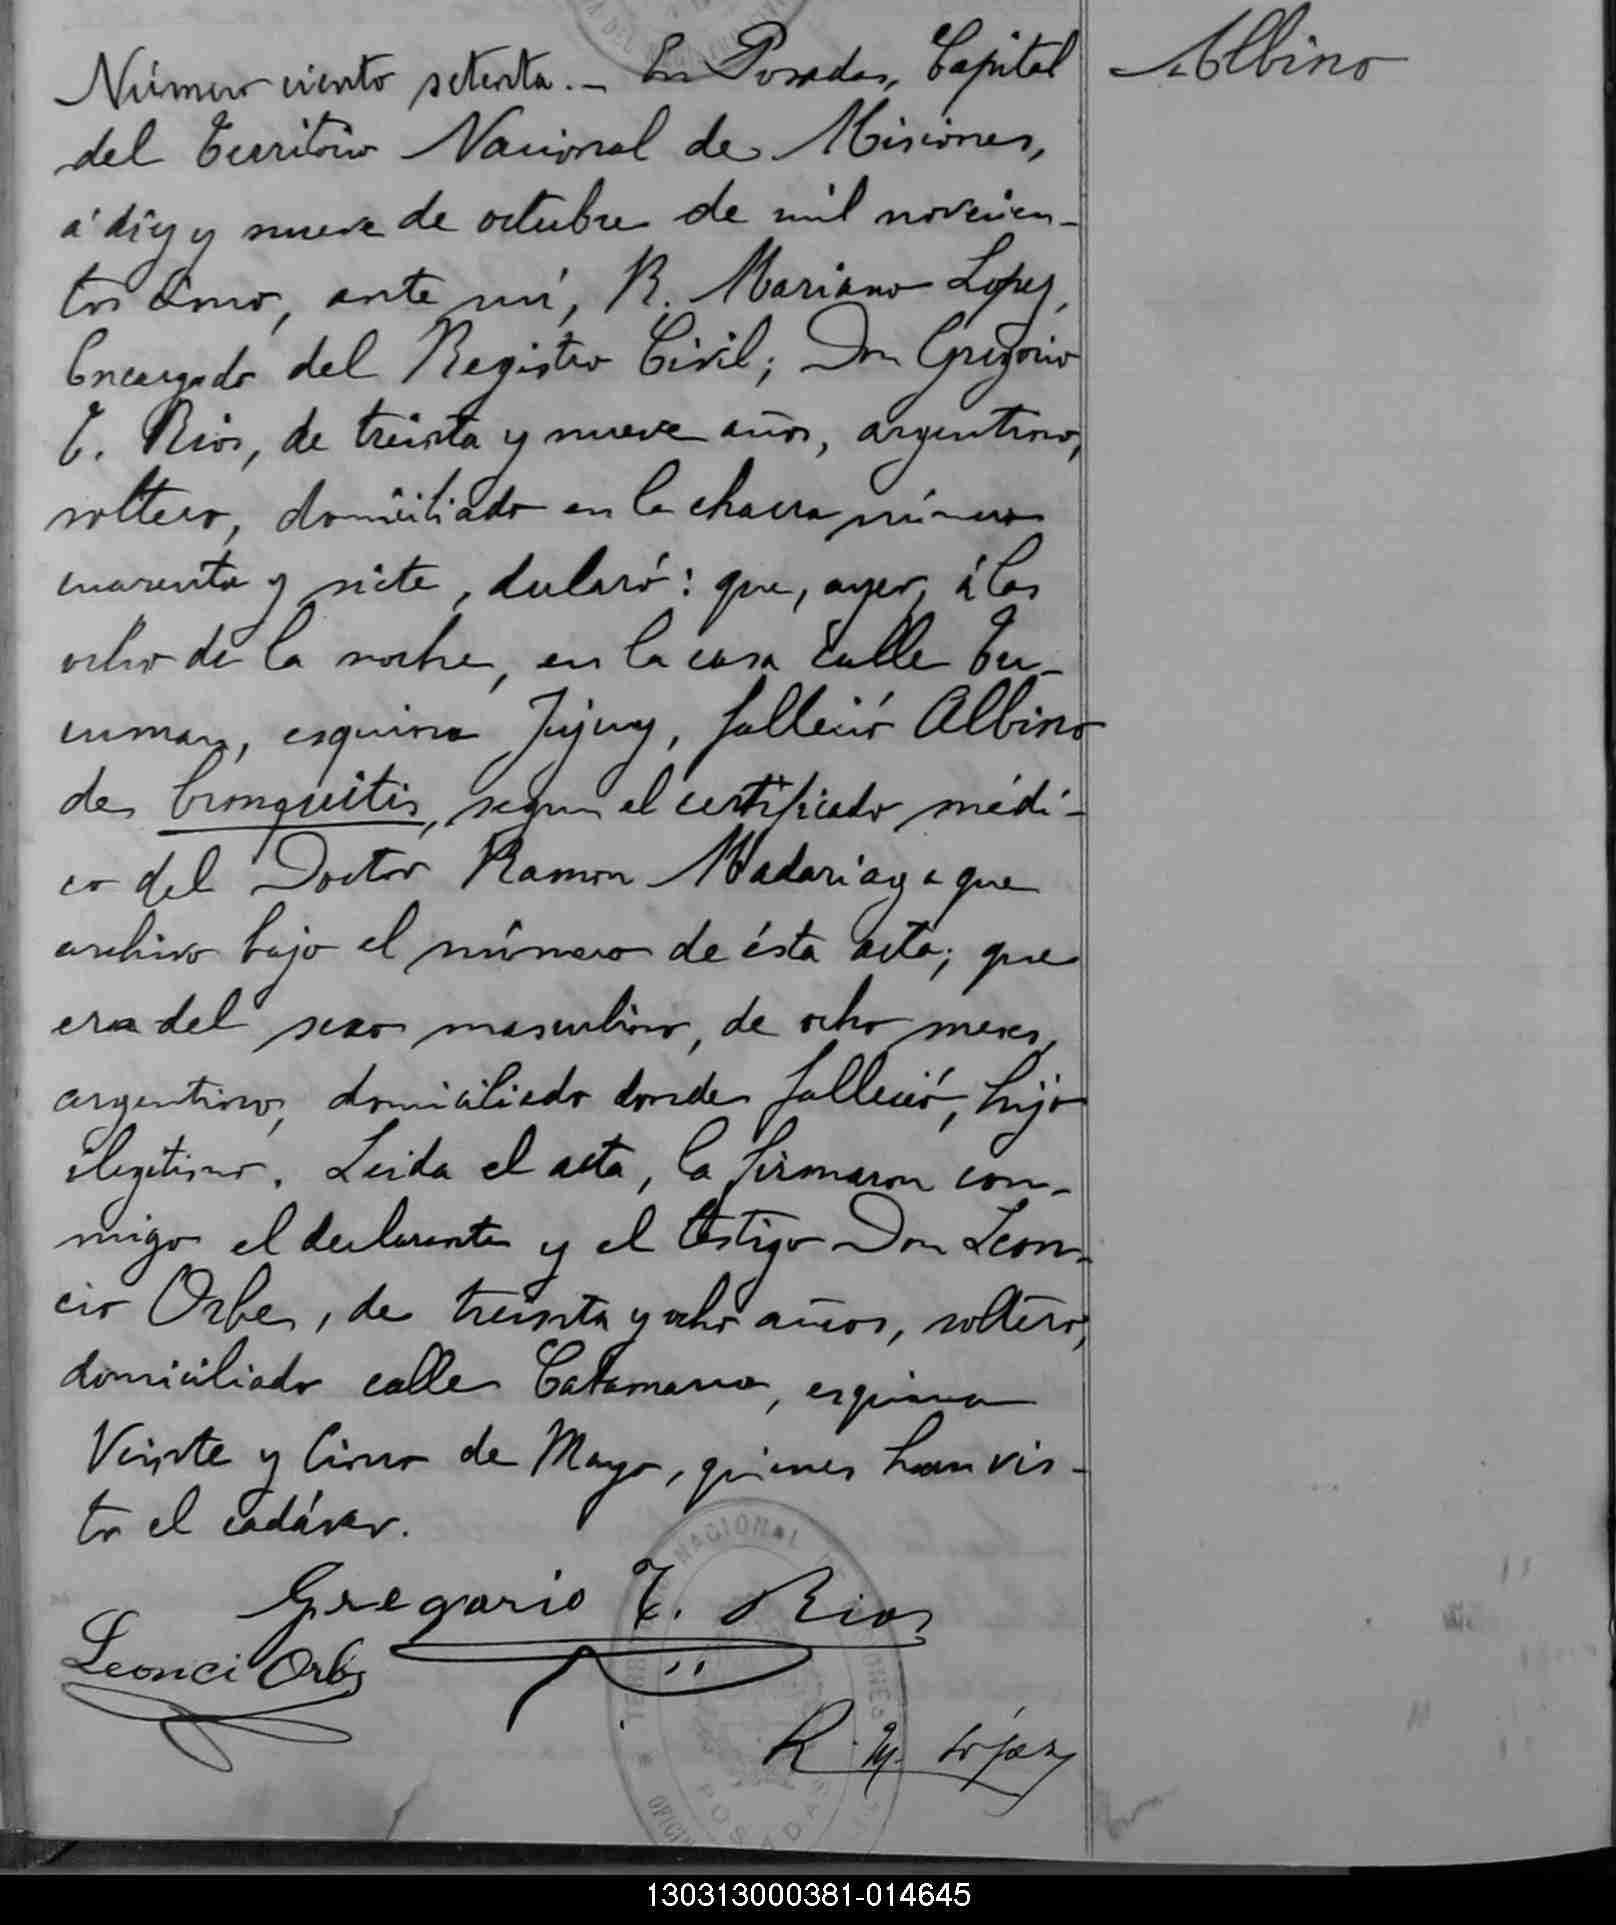 Número ciento setenta.– En Posadas, Capital
Albino
del Territorio Nacional de Misiones,
á diez y nueve de octubre de mil novecien-
tos cinco, ante mí, R. Mariano Lopez,
Encargado del Registro Civil; Don Gregorio
T. Rios, de treinta y nueve años, argentino,
soltero, domiciliado en la chacra número
cuarenta y siete, declaró: que, ayer, á las
ocho de la noche, en la casa calle Tu-
cuman, esquina Jujuy, falleció Albino
de bronquitis, segun el certificado médi-
co del Doctor Ramon Madariaga que
archivo bajo el número de ésta acta; que
era del sexo masculino, de ocho meses,
argentino, domiciliado donde falleció, hijo
ilegítimo. Leida el acta, la firmaron con-
migo el declarante y el testigo Don Leon-
cio Orbe, de treinta y ocho años, soltero,
domiciliado calle Catamarca, esquina
Veinte y Cinco de Mayo, quienes han vis-
to el cadáver.
Gregorio T. Rios
Leonci Orbe
R. M. López
NACIONAL
POSADAS
130313000381-014645